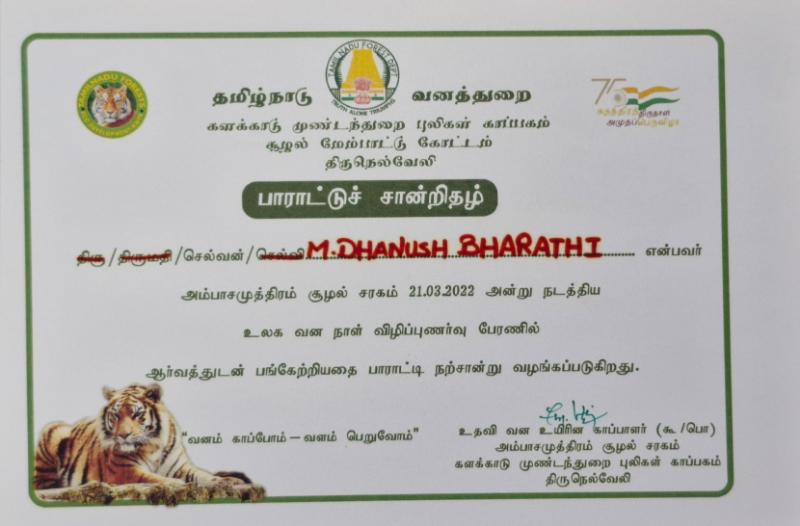 TAMIL NADU FOREST DEPT
TRUTH ALONE TRIUMPHS
TAMILNADU FORESTS
தமிழ்நாடு வனத்துறை
களக்காடு முண்டந்துறை புலிகள் காப்பகம்
சூழல் மேம்பாட்டு கோட்டம்
திருநெல்வேலி
75
சுதந்திரத்திருநாள்
அமுதப்பெருவிழா
பாராட்டுச் சான்றிதழ்
திரு/திருமதி/செல்வன்/செல்வி M.DHANUSH BHARATHI என்பவர்
அம்பாசமுத்திரம் சூழல் சரகம் 21.03.2022 அன்று நடத்திய
உலக வன நாள் விழிப்புணர்வு பேரணில்
ஆர்வத்துடன் பங்கேற்றியதை பாராட்டி நற்சான்று வழங்கப்படுகிறது.
"வனம் காப்போம் – வளம் பெறுவோம்"
உதவி வன உயிரின காப்பாளர் (கூ/பொ)
அம்பாசமுத்திரம் சூழல் சரகம்
களக்காடு முண்டந்துறை புலிகள் காப்பகம்
திருநெல்வேலி